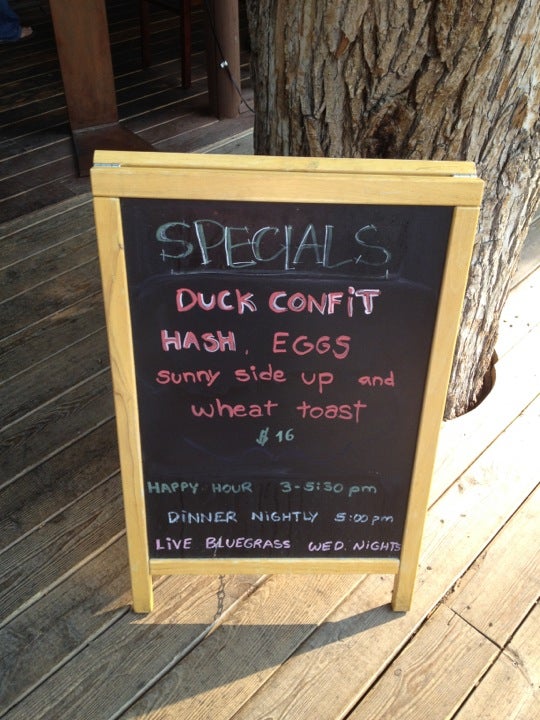 SPECIALS
DUCK CONFIT
HASH, EGGS
sunny side up and
wheat toast
$16
HAPPY HOUR 3-5:30 pm
DINNER NIGHTLY 5:00 pm
LIVE BLUEGRASS WED. NIGHTS